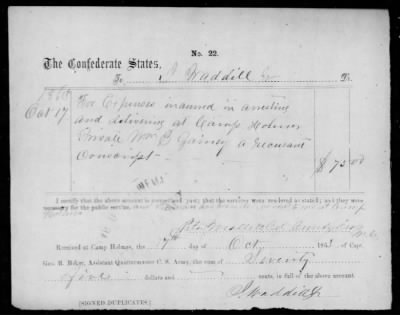 No. 22.
The Confederate States,
To J Waddill Jr Dr.
1863
Oct 17 For Expenses incurred in arresting
and delivering at Camp Holmes
Private Wm B Gainey a recusant
Conscript - $75.00
I certify that the above account is correct and just; that the services were rendered as stated; and that they were
necessary for the public service,
Holmes
Received at Camp Holmes, the 17th day of Oct 1863 of Capt.
Geo. H. Bidger, Assistant Quartermaster C. S. Army, the sum of Seventy
five dollars and cents, in full of the above account.
J Waddill Jr
[SIGNED DUPLICATES.]